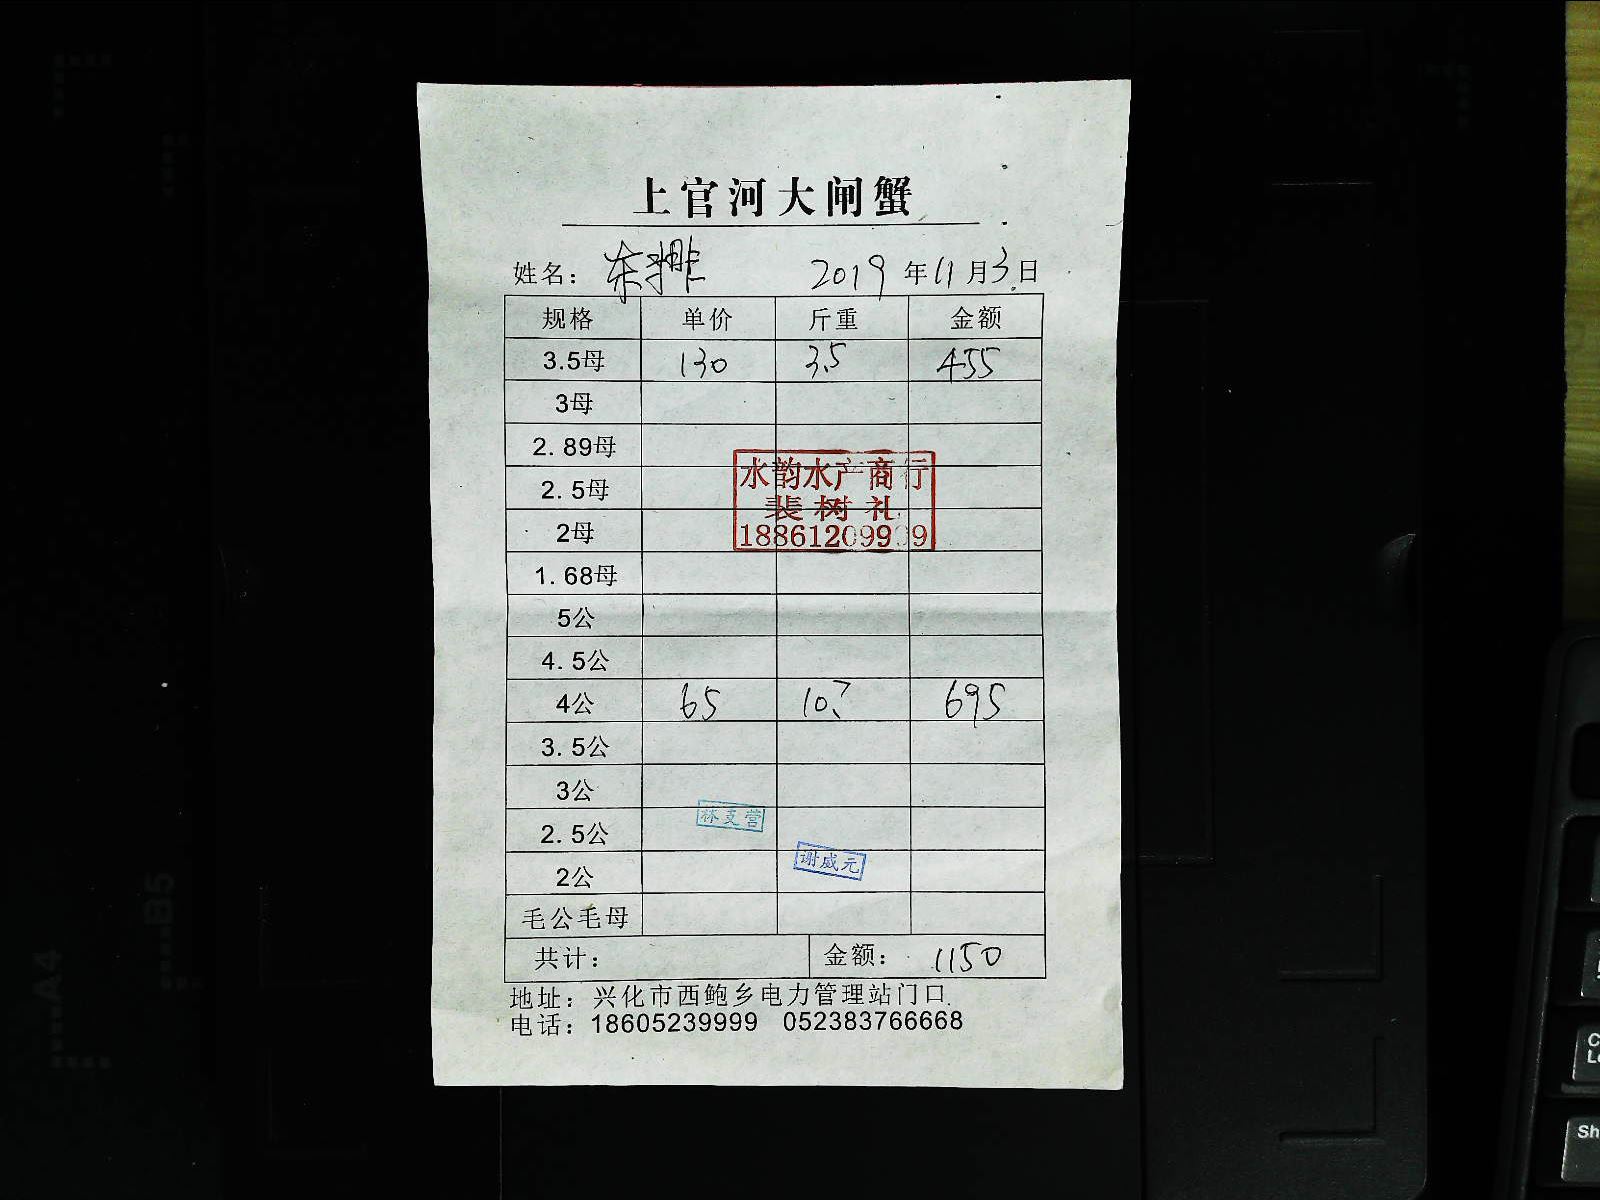 上官河大闸蟹
姓名： 2019年11月3日
规格 单价 斤重 金额
3.5母 130 3.5 455
3母
2.89母
2.5母
2母
1.68母
5公
4.5公
4公 65 10.7 695
3.5公
3公
2.5公
2公
毛公毛母
共计： 金额： 1150
地址：兴化市西鲍乡电力管理站门口
电话：18605239999 052383766668
水韵水产商行
裴树礼
林支营
谢威元
B5
A4